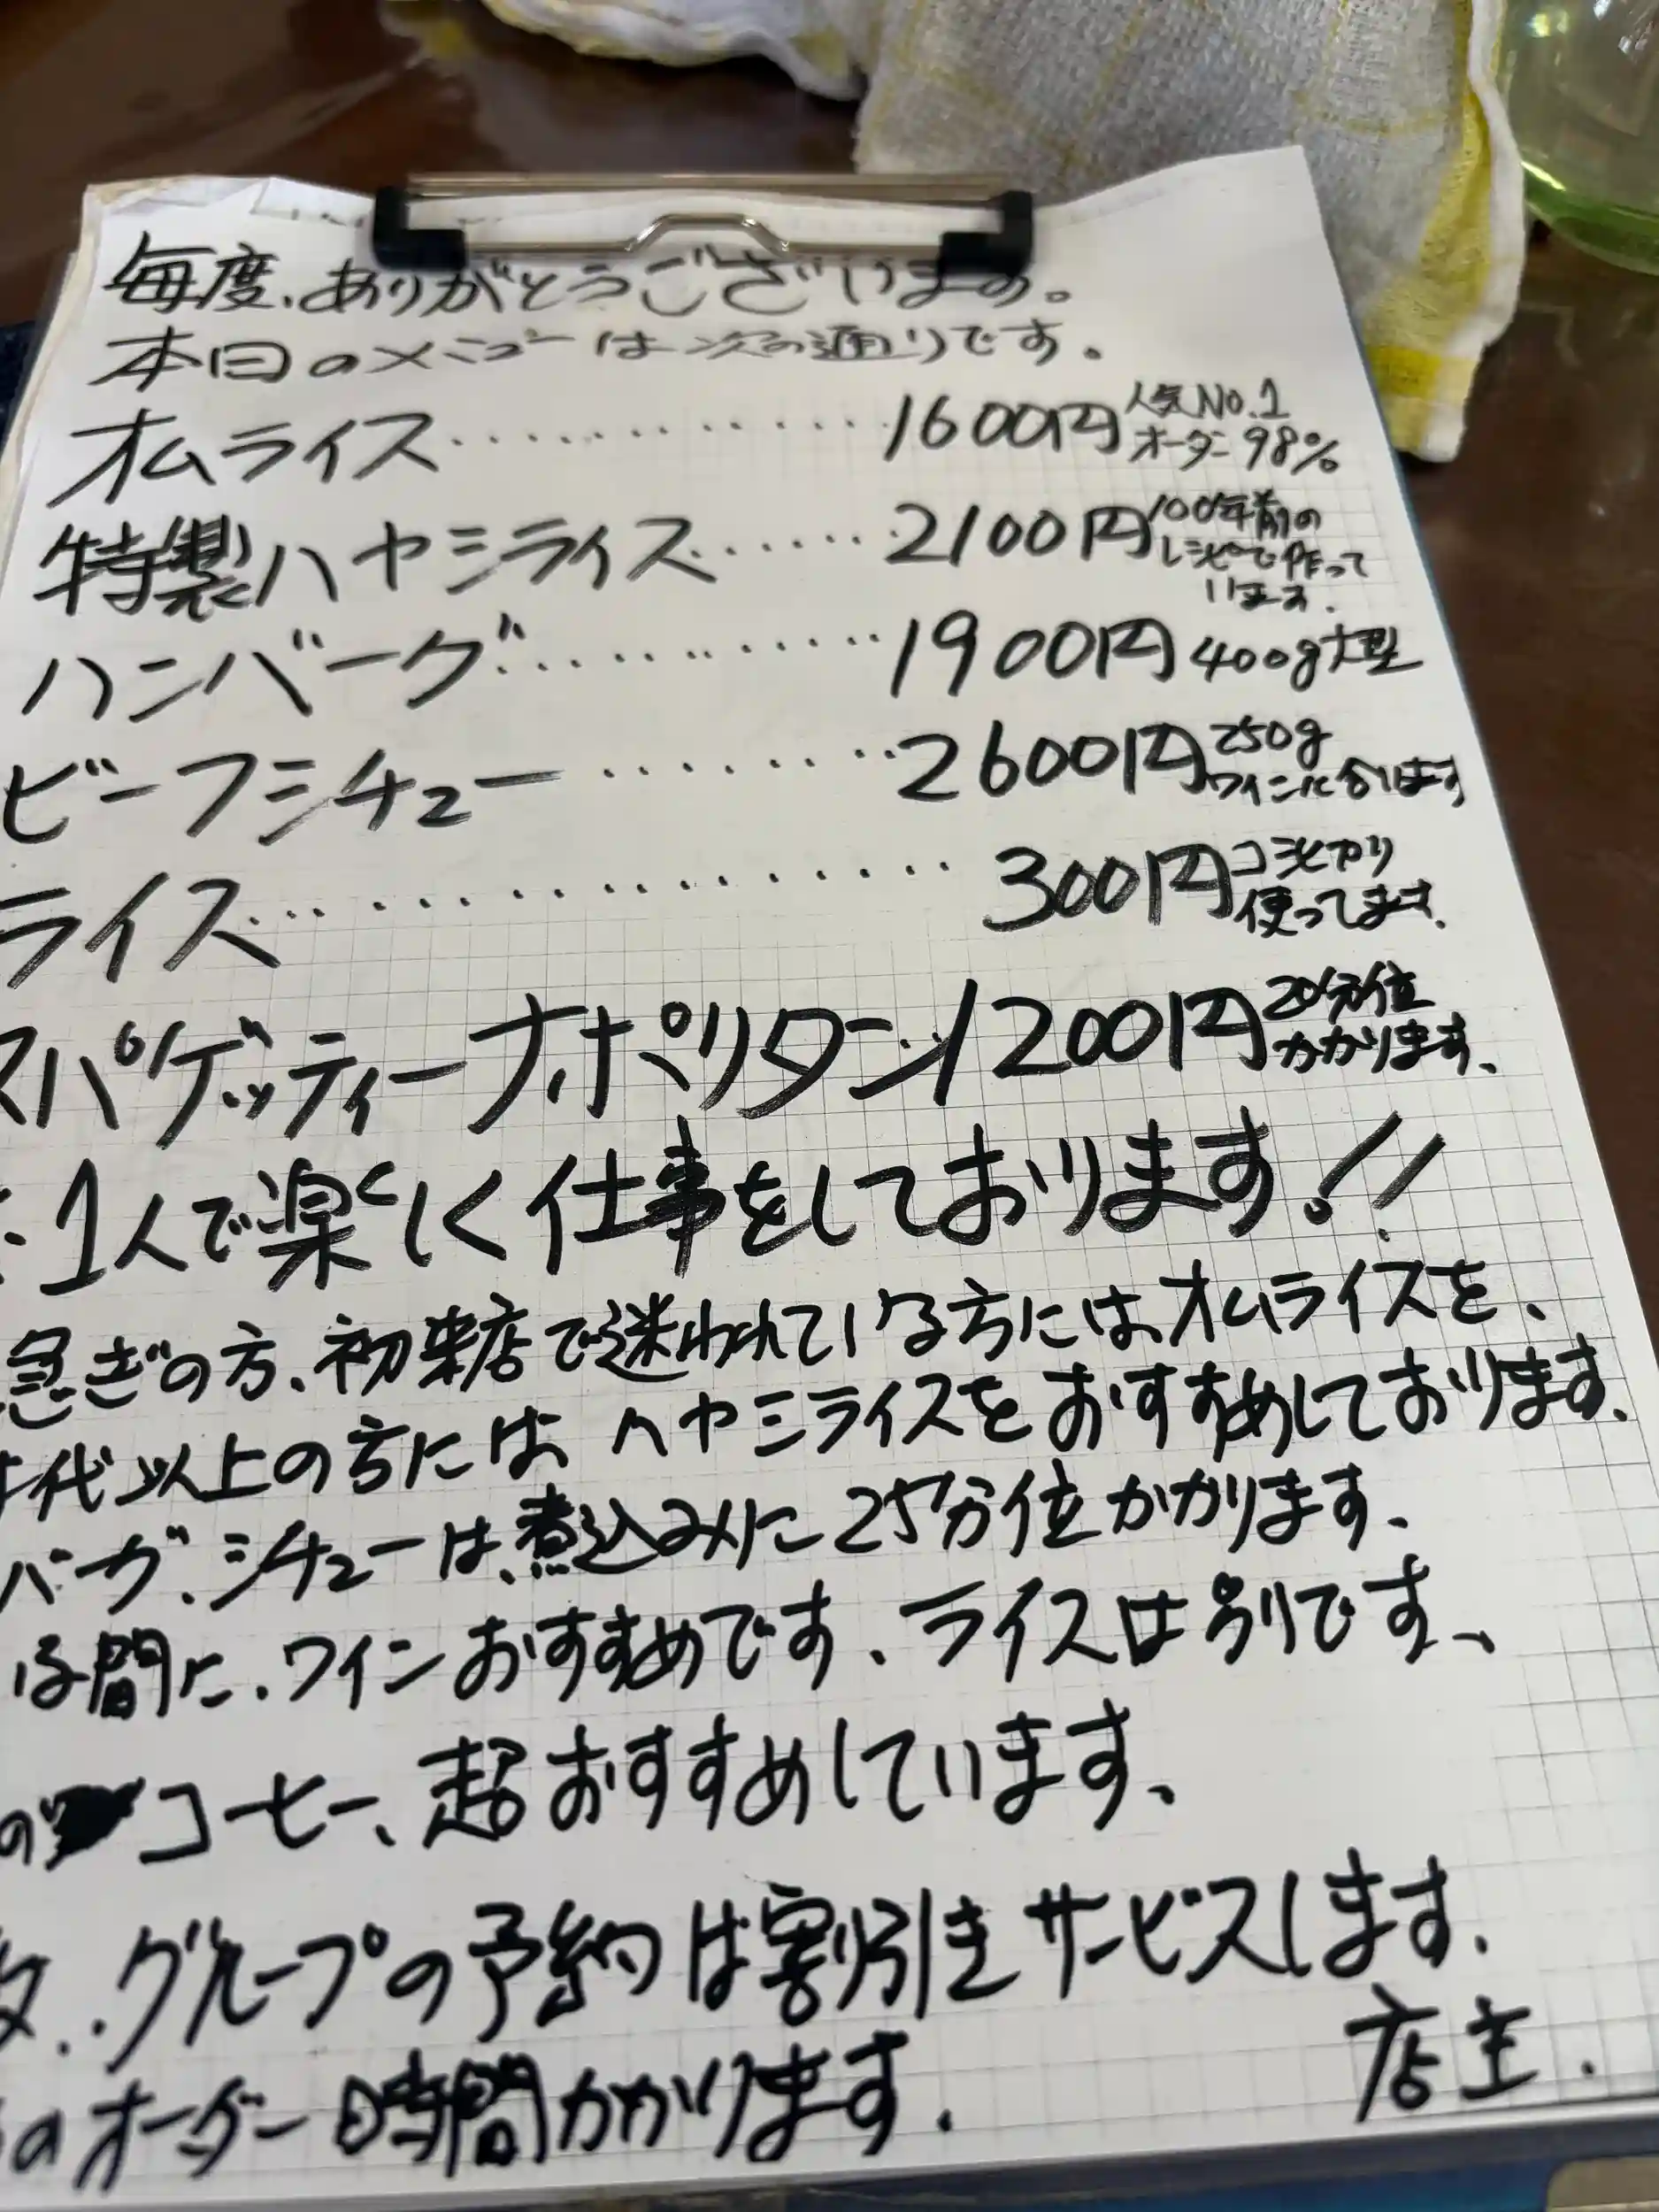 毎度、ありがとうございます。
本日のメニューは次の通りです。
オムライス・・・・・・・・・・・・・1600円 人気No.1
オーダー98%
特製ハヤシライス・・・・・・・2100円 100年前の
レシピで作って
います.
ハンバーグ・・・・・・・・・・・1900円 400g大型
ビーフシチュー・・・・・・・・2600円 250g
ワインに合います
ライス・・・・・・・・・・・・・・・・300円 コシヒカリ
使ってます.
スパゲッティーナポリタン・・1200円 20分位
かかります、
1人で楽しく仕事をしております!!
急ぎの方、初来店で迷われている方には、オムライスを、
代以上の方には、ハヤシライスをおすすめしております.
バーグ、シチューは、煮込みに25分位かかります、
る間に、ワインおすすめです、ライスは別です、
の コーヒー、超おすすめしています、
グループの予約は割引きサービスします.
のオーダー時間かかります.
店主.